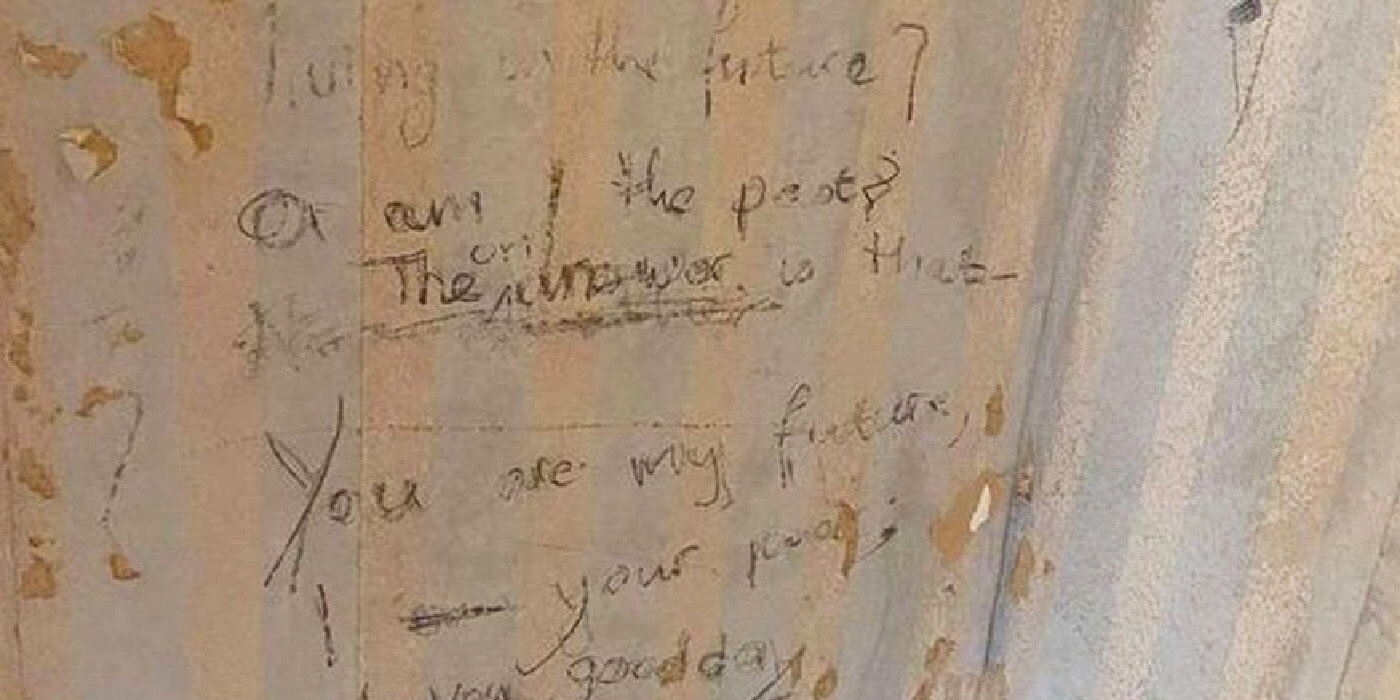 living in the future?
Or am I the past?
The answer is that
You are my future,
I your past;
you good day